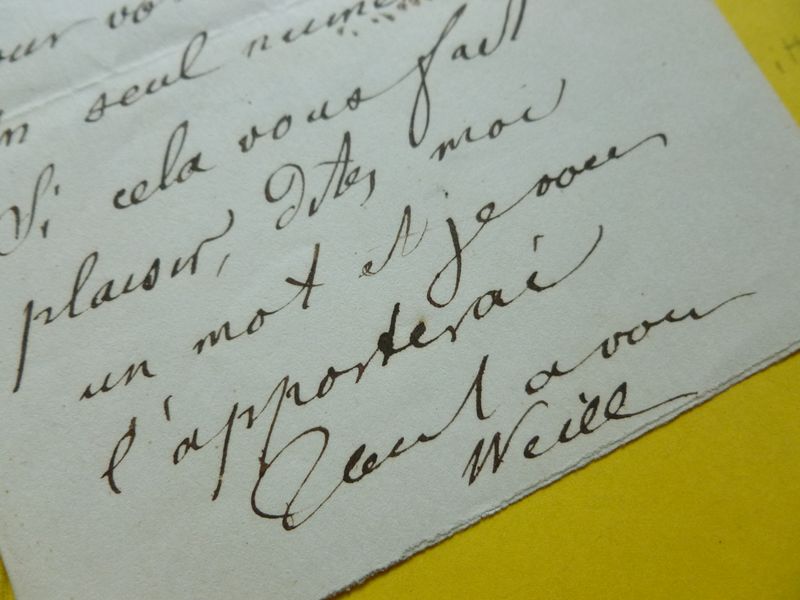 un seul numé
Si cela vous fait
plaisir, dites moi
un mot et je vous
l'apporterai
Tout a vous
Weill